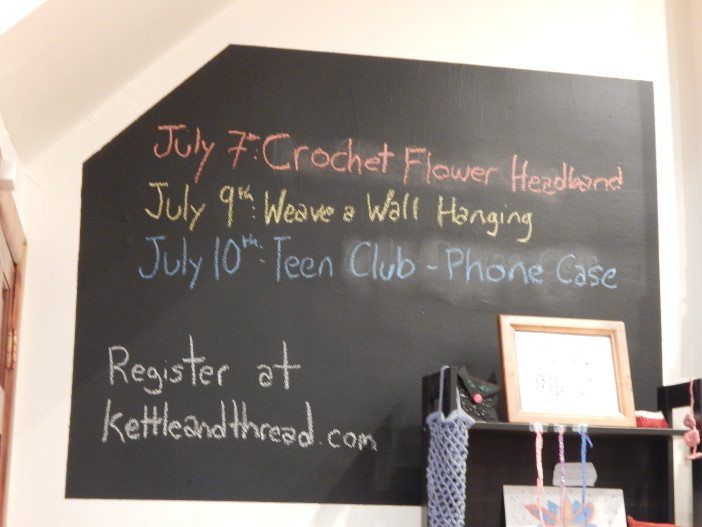 July 7th: Crochet Flower Headband
July 9th: Weave a Wall Hanging
July 10th: Teen Club - Phone Case
Register at
kettleandthread.com